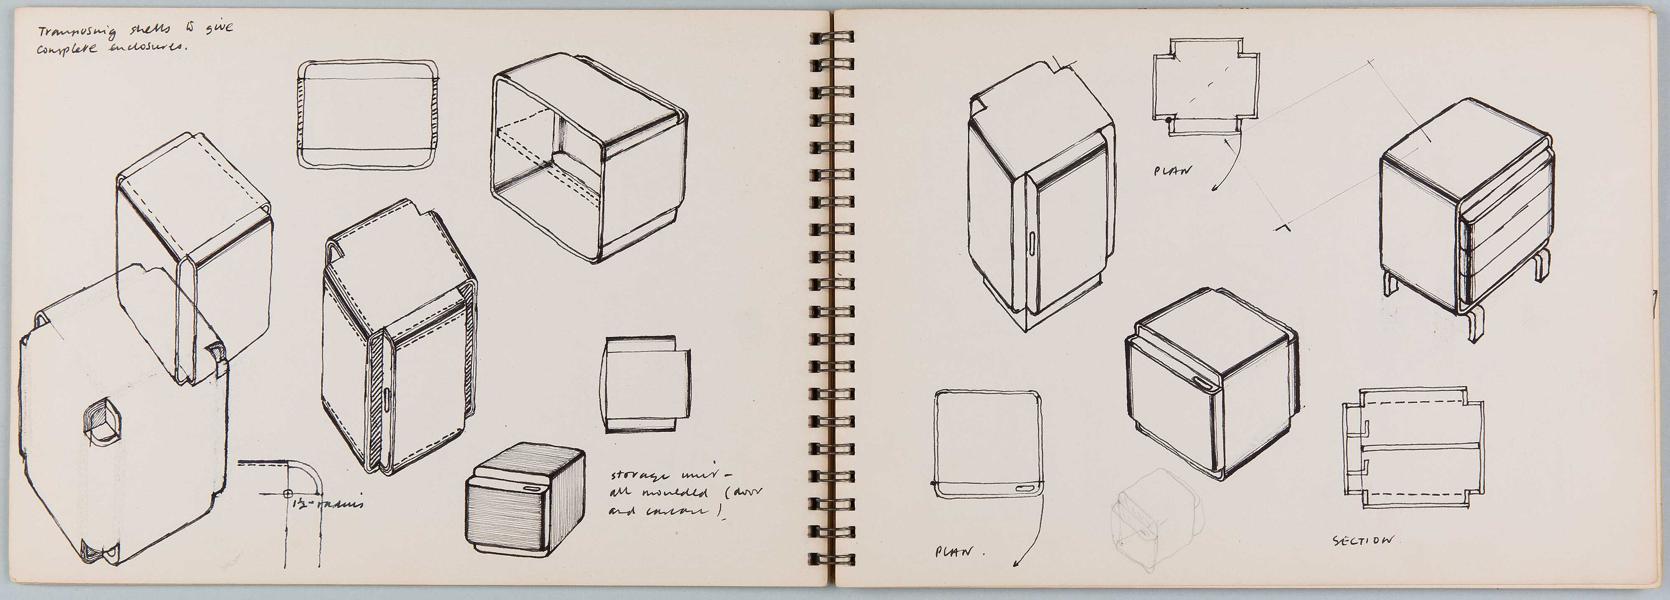 Transposing shells to give
complete enclosures.
1½" radius
storage unit -
all moulded (door
and carcase).
PLAN
PLAN.
SECTION